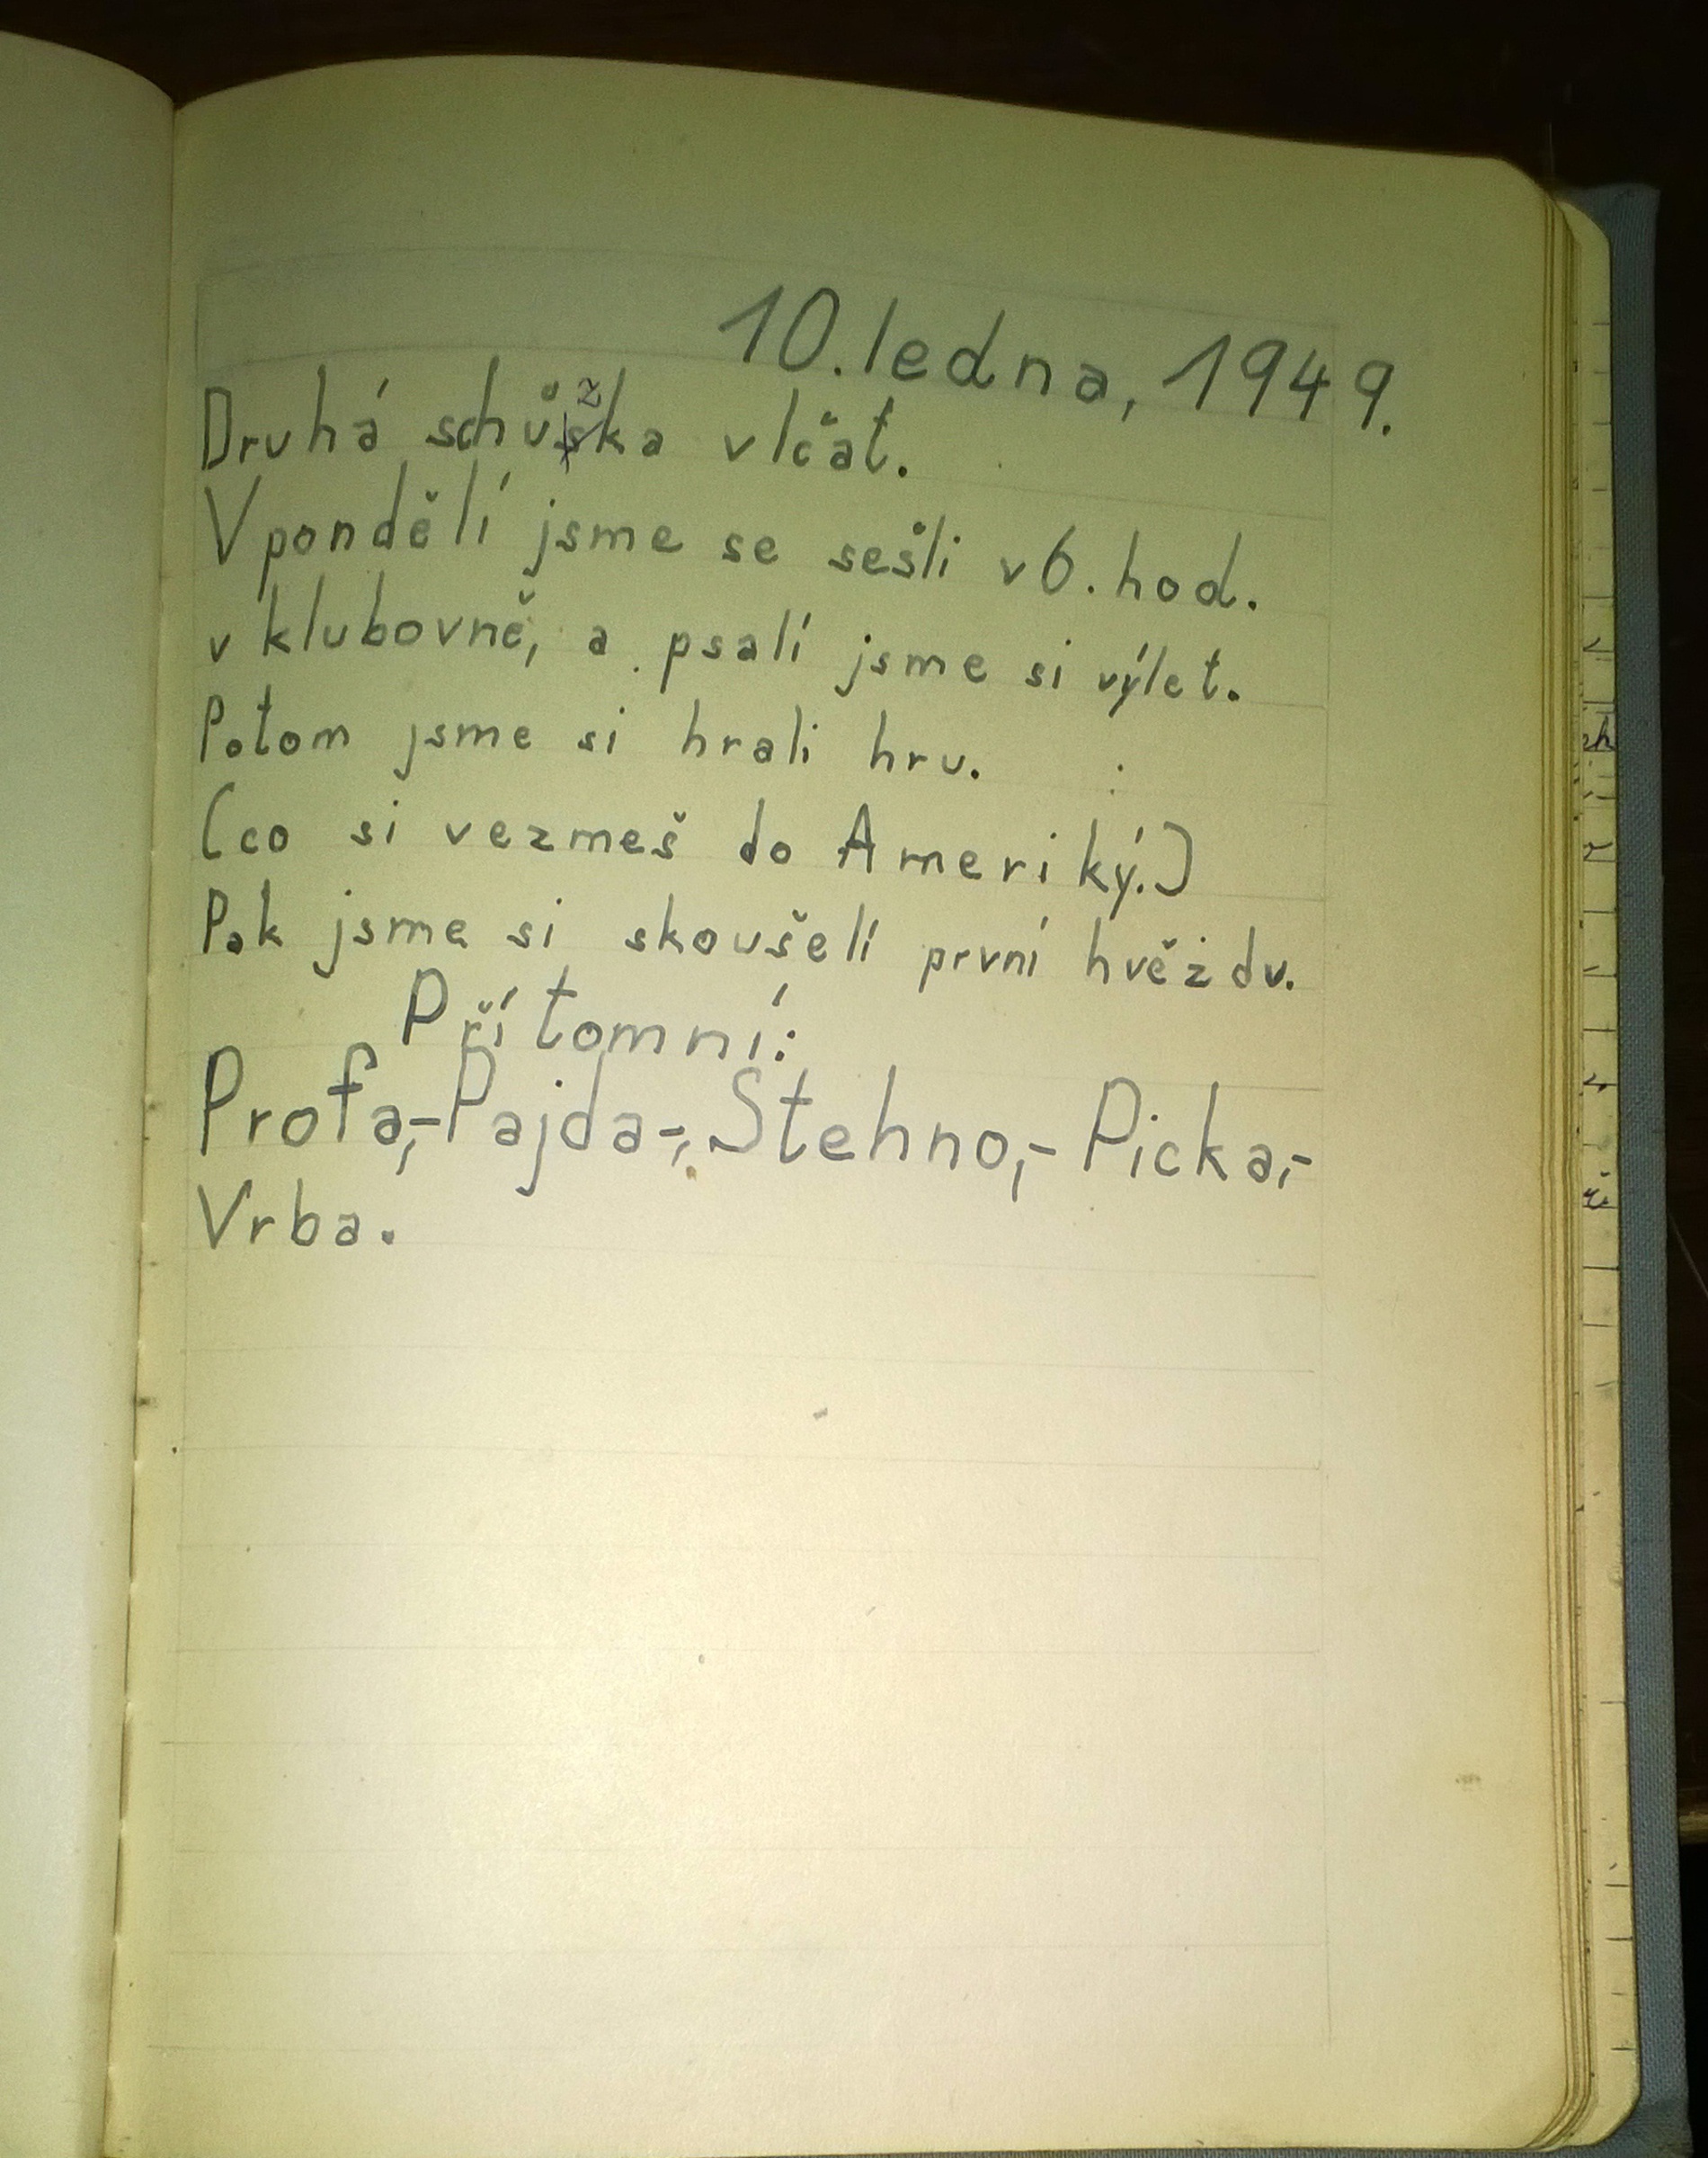 10. ledna, 1949.
Druhá schůzka vlčat.
V pondělí jsme se sešli v 6. hod.
v klubovně, a psalí jsme si výlet.
Potom jsme si hrali hru.
(co si vezmeš do Ameriký.)
Pak jsme si skoušelí první hvězdu.
Přítomní:
Profa,-Pajda-,Stehno,-Picka,-
Vrba.